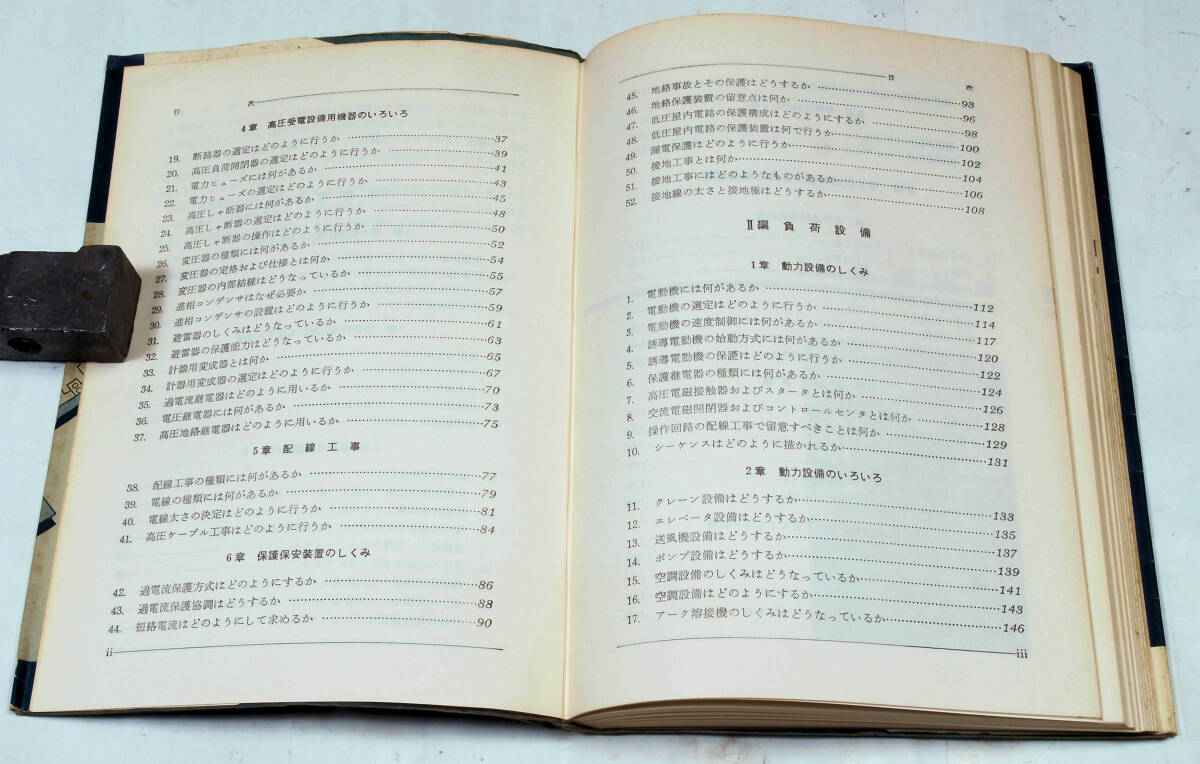 目 次
4章 高圧受電設備用機器のいろいろ
19. 断路器の選定はどのように行うか 37
20. 高圧負荷開閉器の選定はどのように行うか 39
21. 電力ヒューズには何があるか 41
22. 電力ヒューズの選定はどのように行うか 43
23. 高圧しゃ断器には何があるか 45
24. 高圧しゃ断器の選定はどのように行うか 48
25. 高圧しゃ断器の操作はどのように行うか 50
26. 変圧器の種類には何があるか 52
27. 変圧器の定格および仕様とは何か 54
28. 変圧器の内部結線はどうなっているか 55
29. 進相コンデンサはなぜ必要か 57
30. 進相コンデンサの設置はどのように行うか 59
31. 避雷器のしくみはどうなっているか 61
32. 避雷器の保護能力はどうなっているか 63
33. 計器用変成器とは何か 65
34. 計器用変成器の選定はどのように行うか 67
35. 過電流継電器はどのように用いるか 70
36. 電圧継電器には何があるか 73
37. 高圧地絡継電器はどのように用いるか 75
5章 配線工事
38. 配線工事の種類には何があるか 77
39. 電線の種類には何があるか 79
40. 電線太さの決定はどのように行うか 81
41. 高圧ケーブル工事はどのように行うか 84
6章 保護保安装置のしくみ
42. 過電流保護方式はどのようにするか 86
43. 過電流保護協調はどうするか 88
44. 短絡電流はどのようにして求めるか 90
ii
目 次
45. 地絡事故とその保護はどうするか 93
46. 地絡保護装置の留意点は何か 96
47. 低圧屋内電路の保護構成はどのようにするか 98
48. 低圧屋内電路の保護装置は何で行うか 100
49. 漏電保護はどのように行うか 102
50. 接地工事とは何か 104
51. 接地工事にはどのようなものがあるか 106
52. 接地線の太さと接地極はどうするか 108
II編 負荷設備
1章 動力設備のしくみ
1. 電動機には何があるか 112
2. 電動機の選定はどのように行うか 114
3. 電動機の速度制御には何があるか 117
4. 誘導電動機の始動方式には何があるか 120
5. 誘導電動機の保護はどのように行うか 122
6. 保護継電器の種類には何があるか 124
7. 高圧電磁接触器およびスタータとは何か 126
8. 交流電磁開閉器およびコントロールセンタとは何か 128
9. 操作回路の配線工事で留意すべきことは何か 129
10. シーケンスはどのように描かれるか 131
2章 動力設備のいろいろ
11. クレーン設備はどうするか 133
12. エレベータ設備はどうするか 135
13. 送風機設備はどうするか 137
14. ポンプ設備はどうするか 139
15. 空調設備のしくみはどうなっているか 141
16. 空調設備はどのようにするか 143
17. アーク溶接機のしくみはどうなっているか 146
iii